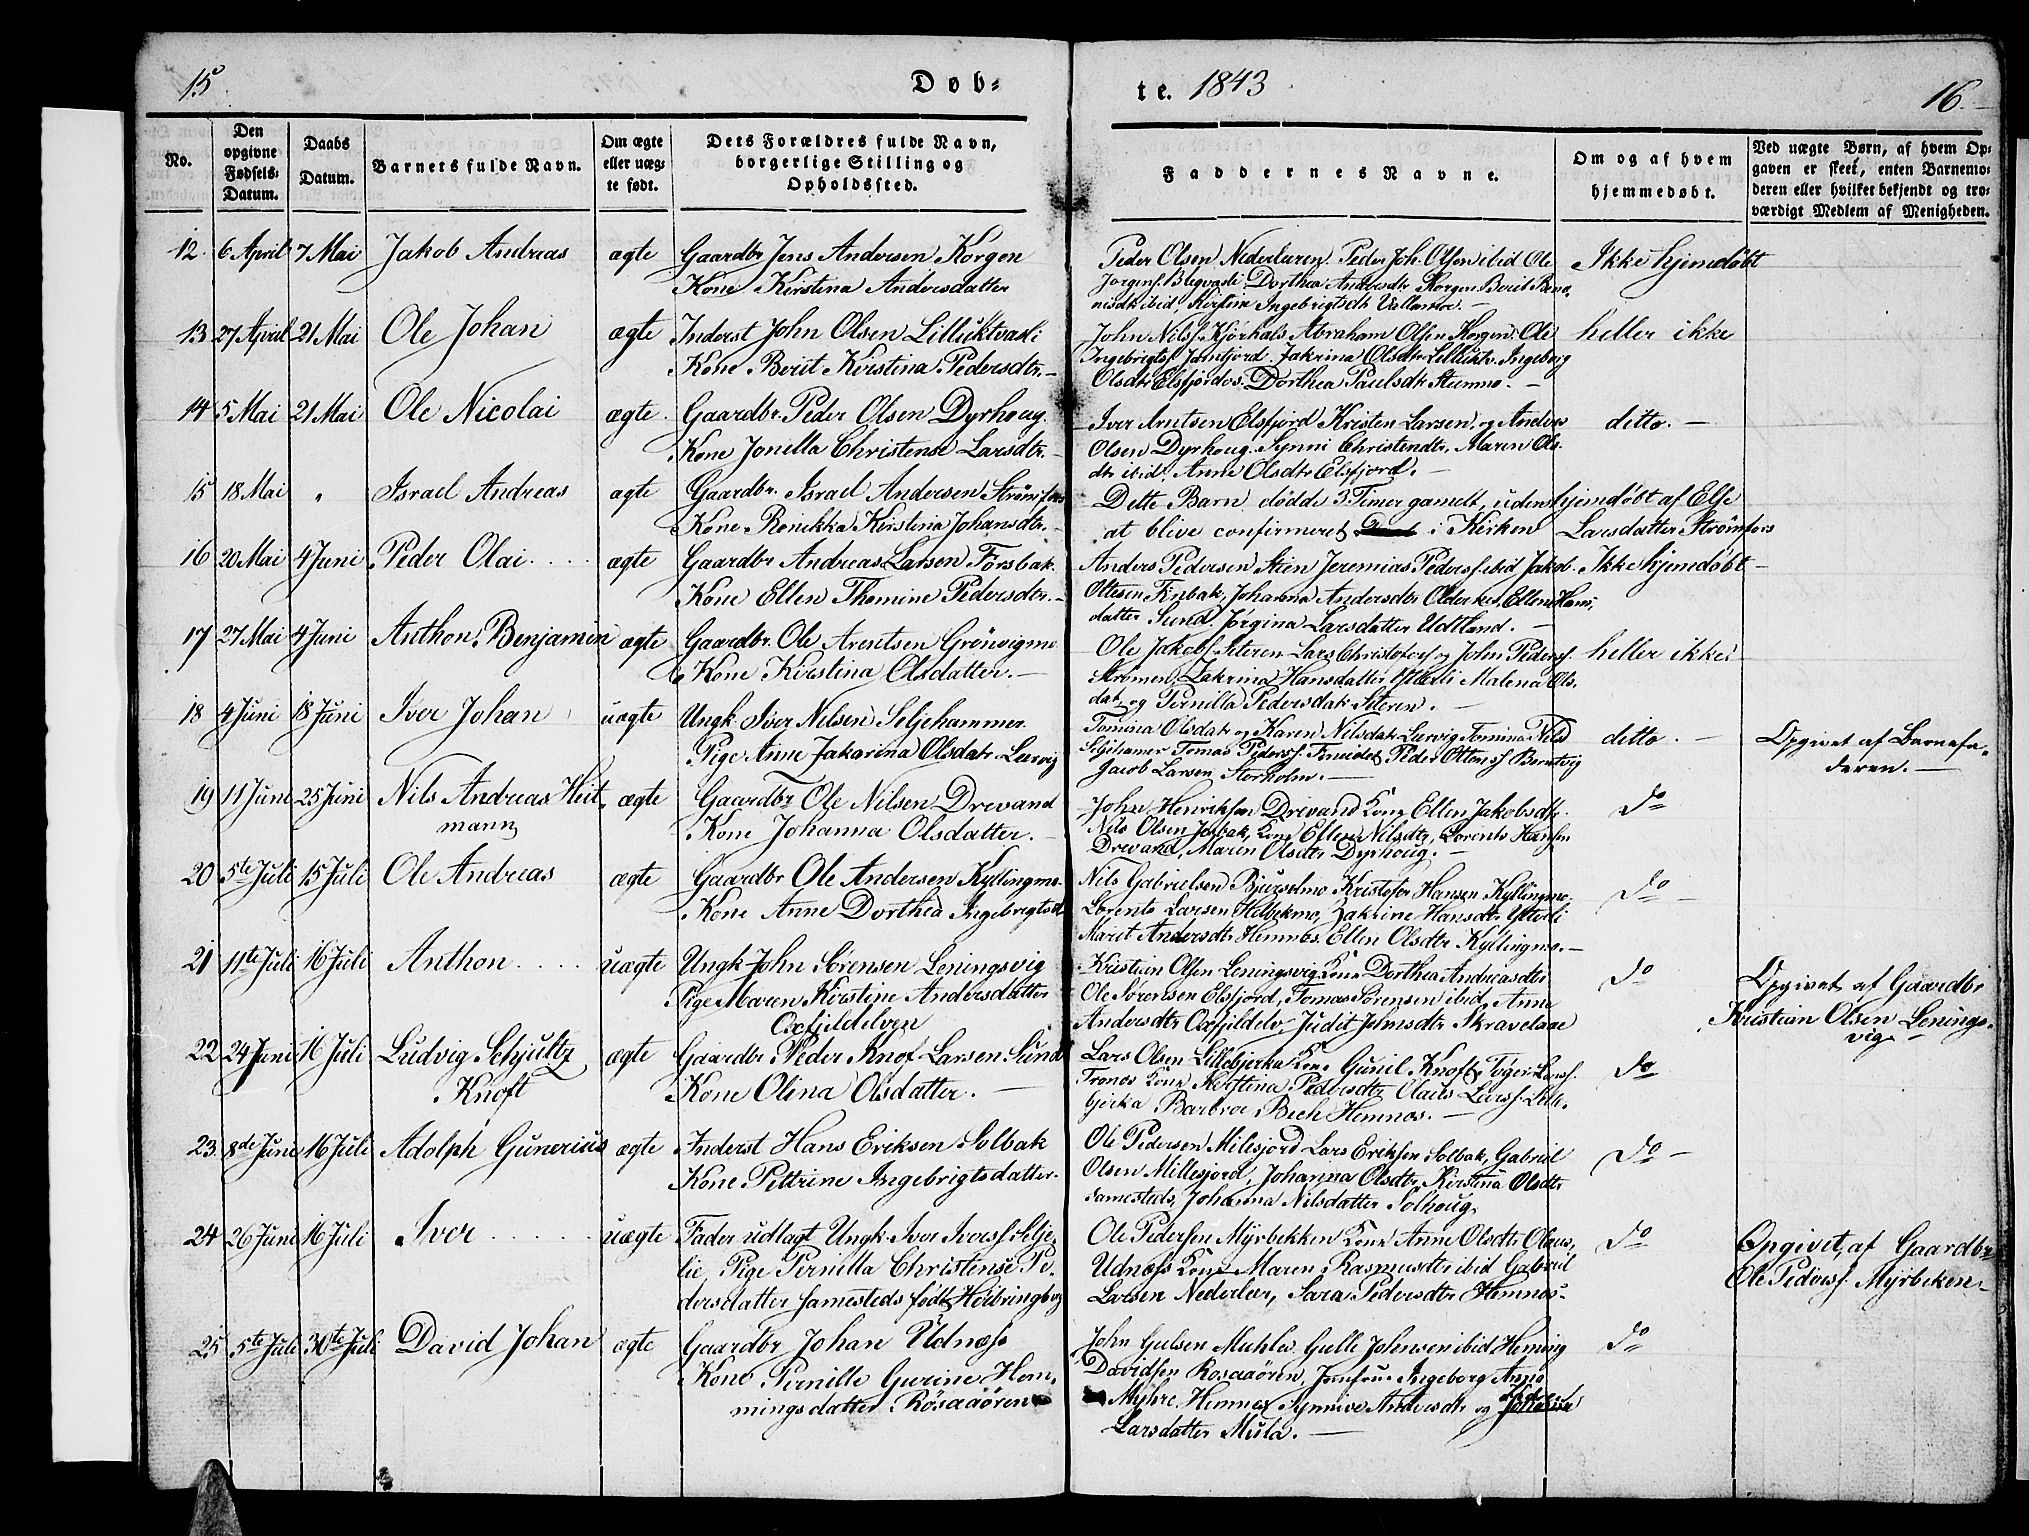 15
Døb-
te. 1843
16.
No.
Den opgivne Fødsels-Datum.
Daabs Datum.
Barnets fulde Navn.
Om ægte eller uæg-te født.
Dets Forældres fulde Navn, borgerlige Stilling og Opholdssted.
Faddernes Navne.
Om og af hvem hjemmedøbt.
Ved uægte Børn, af hvem Op-
gaven er skeet, enten Barnemo-
deren eller hvilket bekjendt og tro-
værdigt Medlem af Menigheden.
12. 6 April 7 Mai Jakob Andreas ægte Gaardbr Jens Andersen Korgen
Kone Kirstina Andersdatter
Peder Olsen Nederleren Peder Joh. Olsen ibid Ole
Dorthea Andersdtr Korgen Berit
ibid, Kirstine Ingebrigtsdtr
Ikke hjemdøbt
13 27 April 21 Mai Ole Johan ægte Inderst John Olsen
Kone Berit Kirstina Pedersdtr.
John Nilss. Abraham Olsen Korgen Ole
Ingebrigtss. Jamtjord Jakrina Olsdtr Ingeborg
Olsdtr Elsfjordos. Dorthea Paulsdtr Stenmo.
heller ikke
14 5 Mai 21 Mai Ole Nicolai ægte Gaardbr. Peder Olsen Dyrhoug.
Kone Jonella Christense Larsdtr.
Iver Arntsen Elsfjord Kristen Larsen og Anders
Olsen Dyrhoug. Synni Christensdtr, Maren Ols-
dtr ibid Anne Olsdtr Elsfjord.
ditto.
15 18 Mai " Israel Andreas ægte Gaardbr. Israel Andersen Strømfors
Kone Renikka Kirstina Johansdtr.
Dette Barn dødde 3 Timer gamelt, uden
at blive confirmeret i Kirken
hjemdøbt af Else
Larsdatter Strømfors
16 20 Mai 4 Juni Peder Olai ægte Gaardbr Andreas Larsen Forsbak
Kone Ellen Thomine Pedersdtr.
Anders Pedersen Stien Jeremias Peders. ibid Jakob
Ottesen Finbak, Johanna Andersdtr Ellen Hans-
datter Sund Jørgina Larsdatter
Ikke hjemdøbt
17 27 Mai 4 Juni Anthon Benjamin ægte Gaardbr. Ole Arentsen Grønvigmo
Kone Kirstina Olsdatter.
Ole Jakobs. Lars Christofers. og John Peders.
Strømen, Zakrina Hansdatter Malena Ols-
dat. og Pernilla Pedersdatr
heller ikke
18 4 Juni 18 Juni Iver Johan uægte Ungk. Iver Nilsen Seljehammer
Pige Anne Jakarina Olsdatr Leirvig
Tomina Olsdatr og Karen Nilsdatr Leirvig Tomina Nilsd
Tomas Peders. Peder Ottens.
Jacob Larsen Storholm.
ditto.
Opgivet af Barnefa-
deren.
19 11 Juni 25 Juni Nils Andreas Heit-
mann
ægte Gaardbr Ole Nilsen Drevand
Kone Johanna Olsdatter.
John Henriksen Drevand Kone Ellen Jakobsdtr.
Nils Olsen Kone Ellen Nilsdtr, Lorents Hansen
Drevand, Maren Olsdtr Dyrhoug.
do
20 5te Juli 15 Juli Ole Andreas ægte Gaardbr Ole Andersen Kyllingmo
Kone Anne Dorthea Ingebrigtsd
Nils Gabrielsen Kristofer Hansen Kyllingmo,
Lorents Larsen Zakrine Hansdtr Ytterli
Marit Andersdtr Hemnes. Ellen Olsdtr Kyllingmo.
do
21 11te Juli 16 Juli Anthon uægte Ungk John Sørensen Leningsvig
Pige Maren Kirstine Andersdatter
Oxfjeldelven
Kristian Olsen Leningsvig Kone Dorthea Andreasdtr
Ole Sørensen Elsfjord, Tomas Sørensen ibid, Anne
Andersdtr Oxfjeldelv Judit Johnsdtr
do
Opgivet af Gaardbr
Kristian Olsen Lenings-
vig
22 24 Juni 16 Juli Ludvig Schjultz
Knoft
ægte Gaardbr Peder Knof Larsen Sund
Kone Olina Olsdatter.
Lars Olsen Lillebjerka Kone Gunil Knoft, Toger Larss.
Kone Kirstina Pedersdtr Olaus Larss. Lill-
bjerka Barbroe Bech Hemnes.
do
23 8de Juni 16 Juli Adolph Gunerius ægte Inderst Hans Eriksen Solbak
Kone Pettrine Ingebrigtsdatter.
Ole Pedersen Milesjord Lars Eriksen Solbak, Gabriel
Olsen Millesjord, Johanna Olsdtr Kirstina Olsdtr
samesteds, Johanna Nilsdatter Solhoug
do
24 26 Juni 16 Juli Iver uægte Fader udlagt Ungk. Iver Iverss. Selje-
lie, Pige Pernilla Christense Pe-
dersdatter samesteds født
Ole Pedersen Myrbekken Kone Anne Olsdtr Olaus
Udnæss Kone Maren Rasmusdtr ibid Gabriel
Larsen Nederleer, Sara Pedersdtr Hemnes.
do
Opgivet af Gaardbr
Ole Peders. Myrbeken
25 5te Juli 30te Juli David Johan ægte Gaardbr Johan Udnæss
Kone Pernille Gurine Hem-
mingsdatter Røsaaøren
John Gulsen Gulle Johnsen ibid Heming
Davidsen Rosaaøren, Jomfrue Ingeborg Anne
Myhre Hemnes Synnive Andersdtr og
Larsdatter Mula.
do